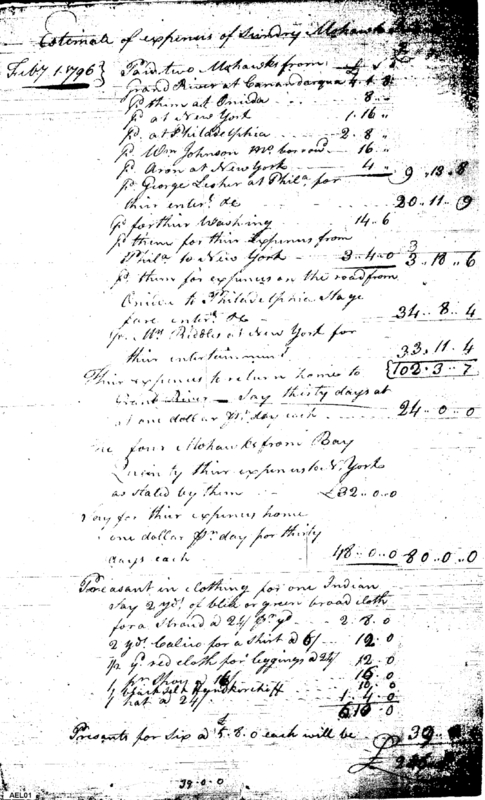 Estimate of expences of Sundry Mohawks
Feby 1 1796 } Paid two Mohawks from £ s d
Grand River at Canandarqua 4 1 8
pd them at Oneida 8 "
pd at New York 1.16 "
pd at Philadelphia 2.8 "
pd Wm Johnson Mc 16 "
pd Aron at New York 4 " 9.13.8
pd George Lesher at Phila for
thir entert. &c 20..11..9
pd for thir Washing 14..6
pd them for thir Expences from 3
Phila to New York 3..4..0 3..18..6
pd them for expences on the road from
Oneida to Philadelphia Stage
fare entert. &c 34..8..4
Wm Riddle at New York for
thir entertainment 33..11..4
Thir expences to return home to 102..3..7
Grand River - Say thirty days at
at one dollar pr. day each 24..0..0
four Mohawks from Bay
thir expences to N. York
as stated by them £32..0..0
Say for thir expences home
one dollar pr day for thirty
days each 48..0..0 80..0..0
Preasant in clothing for one Indian
Say 2 yds of blue or green broad cloth
for a Stroud a 24/ pr yd 2..8..0
2 yds Calico for a Shirt a 6/ 12..0
yd red cloth for leggings a 24/ 12..0
1 pr Shoes 16/ 16..0
1 black silk Hyndkerchiff 10..0
1 hat a 24/ 1..4..0
Presants for six a £5.8.0 each will be 39
£
39.0.0
AEL01